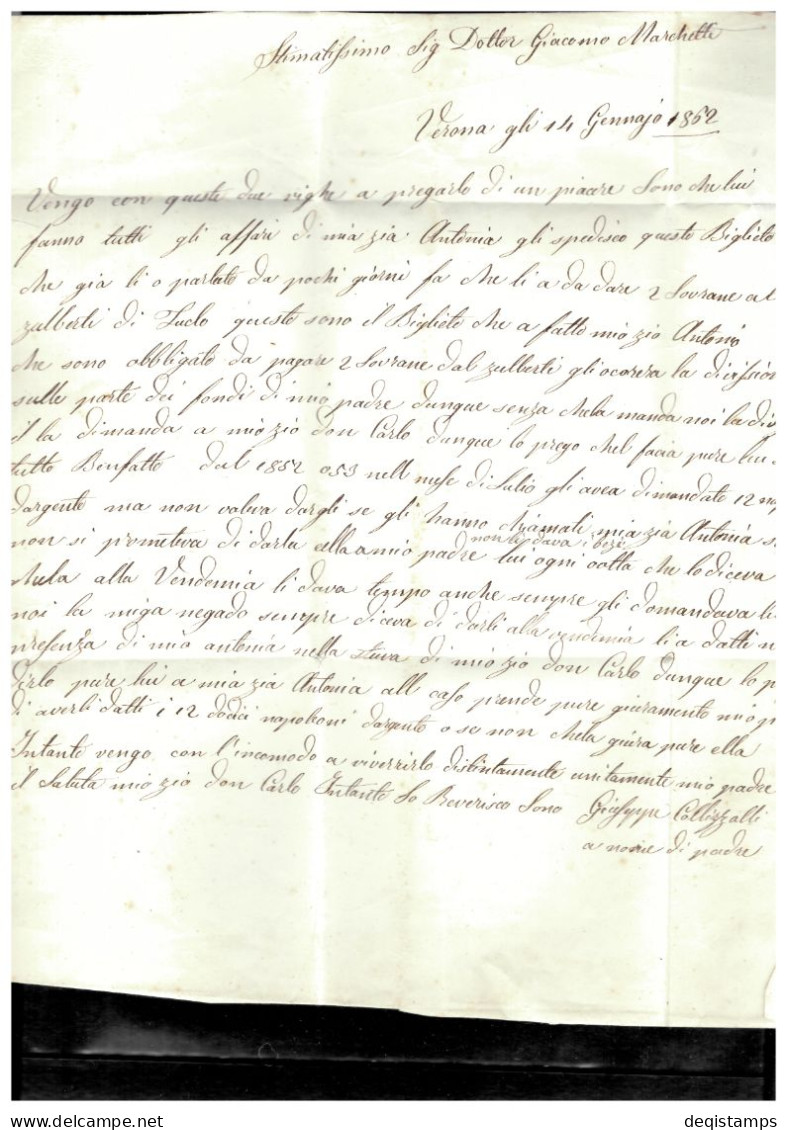 Stimatissimo Sig Dottor Giacomo Marchetti
Verona gli 14 Gennajo 1862
Vengo con queste due righe a pregarlo di un piacere Sono che lui
fanno tutti gli affari di mia zia Antonia gli spedisco questo Biglieto
che gia li o parlato da pochi giorni fa che li a da dare 2 Sovrane al
Zulberti di questo sono il Biglieto che a fatto mio zio Antonio
che sono obbligato da pagare 2 Sovrane dal Zulberti gli ocorera la divission
sulle parte dei fondi di mio padre dunque senza chela manda noi la div
il la dimanda a mio zio Don Carlo dunque lo prego chel facia pure lui
tutto Benfatto dal 1852 o 53 nell mese di Lulio gli avea dimandato 12 nap
dargento ma non voleva dargli se gli hanno chiamati mia zia Antonia s
non si prometeva di darla ella a mio padre non le dava i bezi lui ogni volta che lo diceva
chela alla Vendemia li dava tempo anche sempre gli domandava li
noi la miga negado sempre diceva di darli alla vendemia lia datti n
presenza di mio antonia nella stuva di mio zio don Carlo dunque lo p
dirlo pure lui a mia zia Antonia all caso prende pure giuramento mio p
di averli datti i 12 dodici napoleoni dargento o se non chela giura pure ella
Intanto vengo con l'incomodo a riverrirlo distintamente unitamente mio padre
il Saluta mio zio don Carlo Intanto Lo Reverisco Sono Giuseppe
a nome di padre
deqistamps